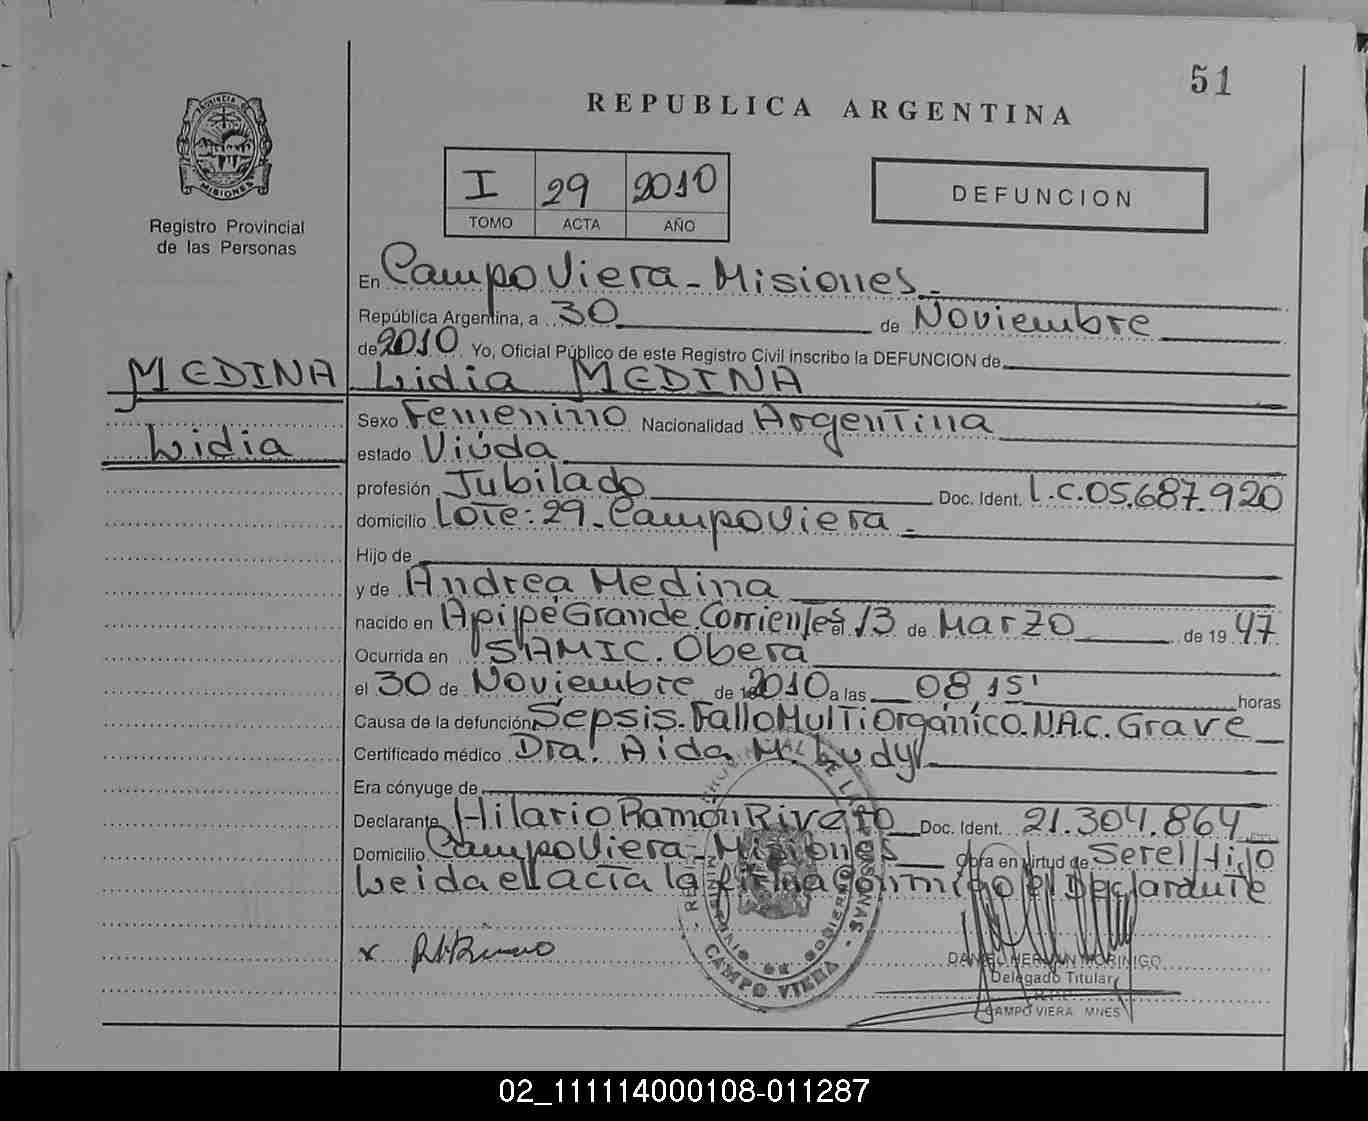 51
REPUBLICA ARGENTINA
PROVINCIA DE MISIONES
Registro Provincial
de las Personas
I 29 2010
TOMO ACTA AÑO
DEFUNCION
En Campo Viera - Misiones -
República Argentina, a 30 de Noviembre
de 2010. Yo, Oficial Público de este Registro Civil inscribo la DEFUNCION de
MEDINA Lidia MEDINA
Sexo Femenino Nacionalidad Argentina
Lidia
estado Viúda
profesión Jubilado Doc. Ident. L.C.05.687.920
domicilio Lote: 29. Campo Viera -
Hijo de
y de Andrea Medina
nacido en Apipé Grande. Corrientes el 13 de Marzo de 19 47
Ocurrida en SAMIC. Obera
el 30 de Noviembre de 2010 a las 08 15' horas
Causa de la defunción Sepsis. Fallo Multiorgánico. N.A.C. Grave
Certificado médico Dra. Aida M. Ludy
Era cónyuge de
Declarante Hilario Ramón Rivero Doc. Ident. 21.304.864
Domicilio Campo Viera - Misiones Obra en virtud de Ser el Hijo
Leida el acta la firma conmigo el Declarante
x
DANIEL HERNAN MORINIGO
Delegado Titular
CAMPO VIERA MNES
CAMPO VIERA
02_111114000108-011287